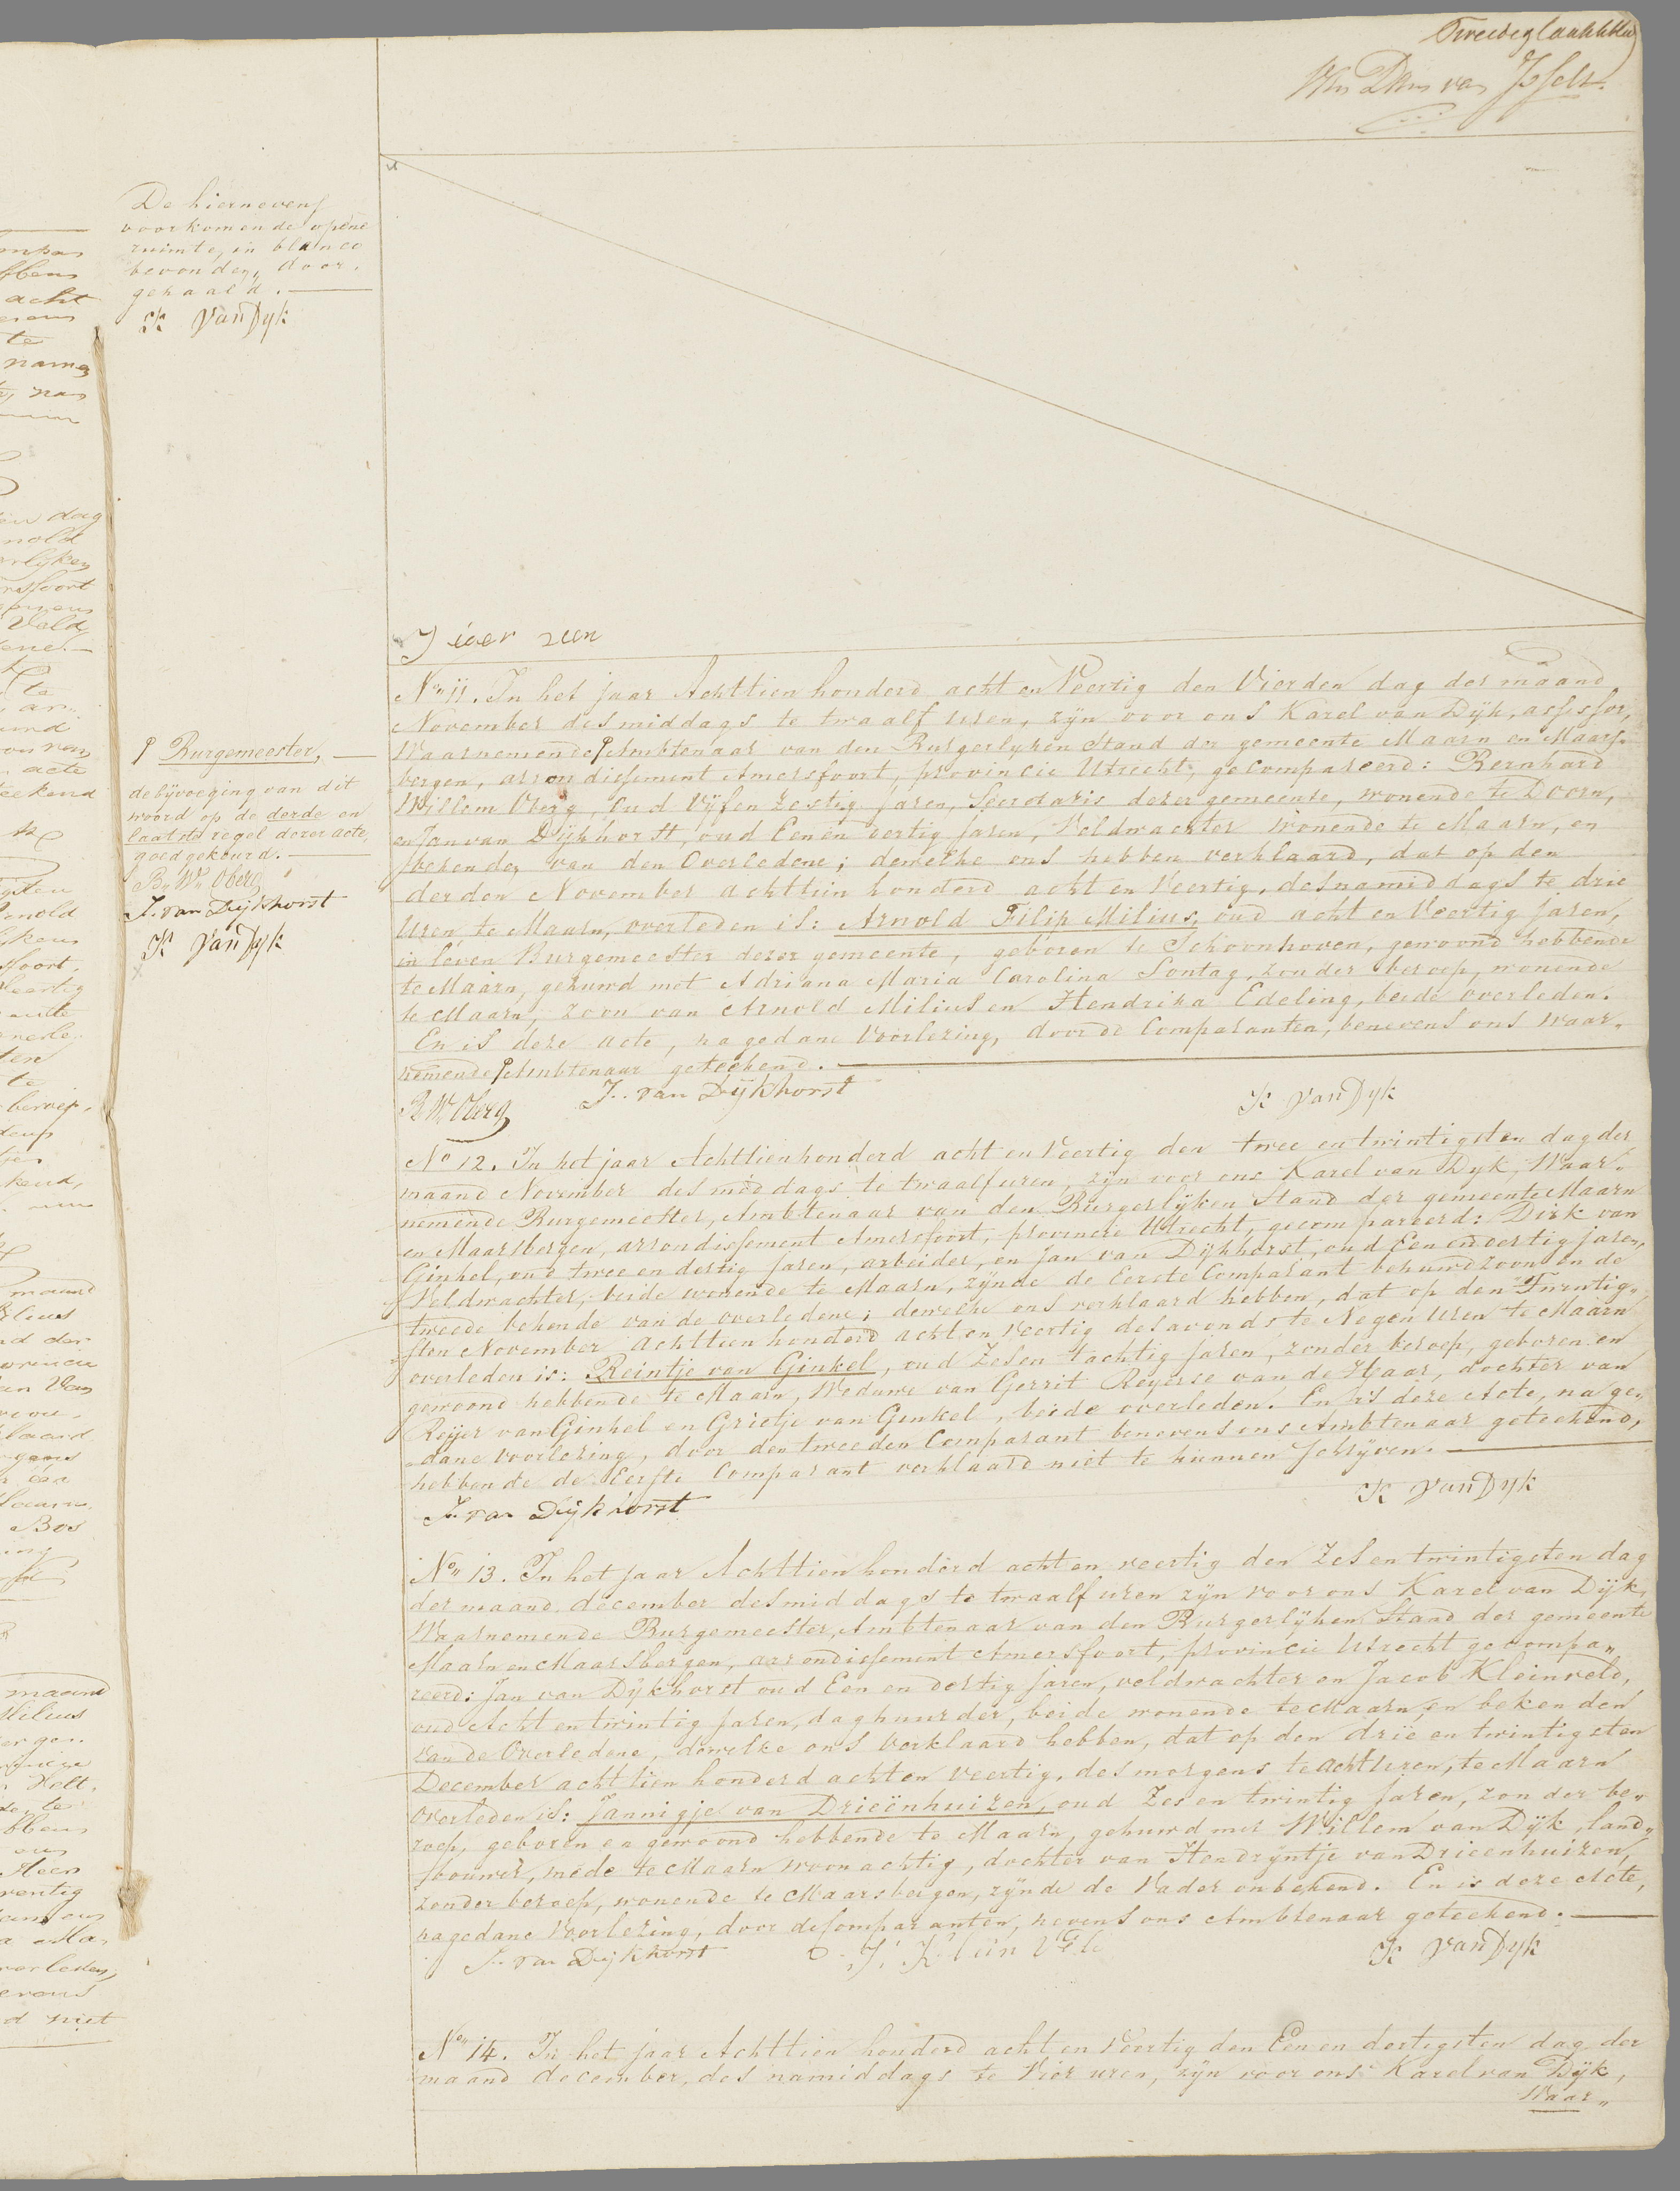 Tweede blad
Wm Dam van Isselt.
De hiernevens
voorkomende opene
ruimte, in blanco
bevonden, door,
gehaald.
K Van Dyk
N° 11. In het jaar Achttien honderd acht en Veertig den Vierden dag der maand
November des middags te twaalf uren, zijn voor ons Karel van Dijk, assessor,
Waarnemende ꟼ Ambtenaar van den Burgerlyken Stand der gemeente Maarn en Maars„
bergen, arrondissement Amersfoort, provincie Utrecht, gecompareerd: Bernhard
Willem Oberg, Oud Vijf en zestig jaren, Secretaris dezer gemeente, wonende te Doorn,
en Jan van Dijkhorst, oud Een en dertig jaren, Veldwachter wonende te Maarn, en
bekenden van den Overledene; dewelke ons hebben verklaard, dat op den
derden November achttien honderd acht en Veertig, des namiddags te drie
Uren, te Maarn, overleden is: Arnold Filip Milius, oud acht en Veertig jaren,
in leven Burgemeester dezer gemeente, geboren te Schoonhoven, gewoond hebbende
te Maarn, gehuwd met Adriana Maria Carolina Sontag, zonder beroep, wonende
te Maarn, zoon van Arnold Milius en Hendrika Edeling, beide overleden.
En is deze acte, na gedane Voorlezing, door de Comparanten, benevens ons waar„
nemende ꟼ Ambtenaar geteekend.
B W Oberg J. van Dijkhorst K Van Dyk
ꟼ Burgemeester,
de bijvoeging van dit
woord op de derde en
laatste regel dezer acte,
goedgekeurd.
B. W. Oberg
J. van Dijkhorst
K Van Dyk
N° 12. In het jaar Achttien honderd acht en Veertig den twee en twintigsten dag der
maand November des middags te twaalf uren, zijn voor ons Karel van Dyk, Waar„
nemende Burgemeester, Ambtenaar van den Burgerlijken Stand der gemeente Maarn
en Maarsbergen, arrondissement Amersfoort, provincie Utrecht, gecompareerd: Dirk van
Ginkel, oud twee en dertig jaren, arbeider, en Jan van Dijkhorst, oud Een en dertig jaren,
Veldwachter, beide wonende te Maarn, zijnde de Eerste Comparant behuwdzoon en de
tweede bekende van de overledene; dewelke ons verklaard hebben, dat op den Twintig„
sten November achttien honderd acht en veertig des avonds te Negen Uren te Maarn
overleden is: Reintje van Ginkel, oud Zes en tachtig jaren, zonder beroep, geboren en
gewoond hebbende te Maarn, Weduwe van Gerrit Reyerse van de Haar, dochter van
Reijer van Ginkel en Grietje van Ginkel, beide overleden. En is deze Acte, na ge„
dane voorlezing, door den tweeden Comparant benevens ons Ambtenaar geteekend,
hebbende de Eerste Comparant verklaard niet te kunnen schrijven.
J. van Dijkhorst K Van Dyk
N° 13. In het jaar Achttien honderd acht en veertig den Zes en twintigsten dag
der maand december des middags te twaalf uren zijn voor ons Karel van Dijk,
Waarnemende Burgemeester, Ambtenaar van den Burgerlijken Stand der gemeente
Maarn en Maarsbergen, arrondissement Amersfoort, provincie Utrecht gecompa„
reerd: Jan van Dijkhorst oud Een en dertig jaren, veldwachter en Jacob Kleinveld,
oud Acht en twintig jaren, daghuurder, beide wonende te Maarn, en bekenden
van de Overledene, dewelke ons Verklaard hebben, dat op den drie en twintigsten
December achttien honderd acht en Veertig, des morgens te acht Uren, te Maarn
overleden is: Jannigje van Drieënhuizen, oud Zes en twintig jaren, zonder be„
roep, geboren en gewoond hebbende te Maarn, gehuwd met Willem van Dijk, land„
bouwer, mede te Maarn woonachtig, dochter van Hendryntje van Drieenhuizen,
zonder beroep, wonende te Maarsbergen, zijnde de Vader onbekend. En is deze Acte,
na gedane Voorlezing, door de Comparanten, nevens ons Ambtenaar geteekend.
J. van Dijkhorst J. Klein Veld K Van Dyk
N° 14. In het jaar Achttien honderd acht en Veertig den Een en dertigsten dag der
maand december, des namiddags te Vier uren, zijn voor ons Karel van Dijk,
Waar„